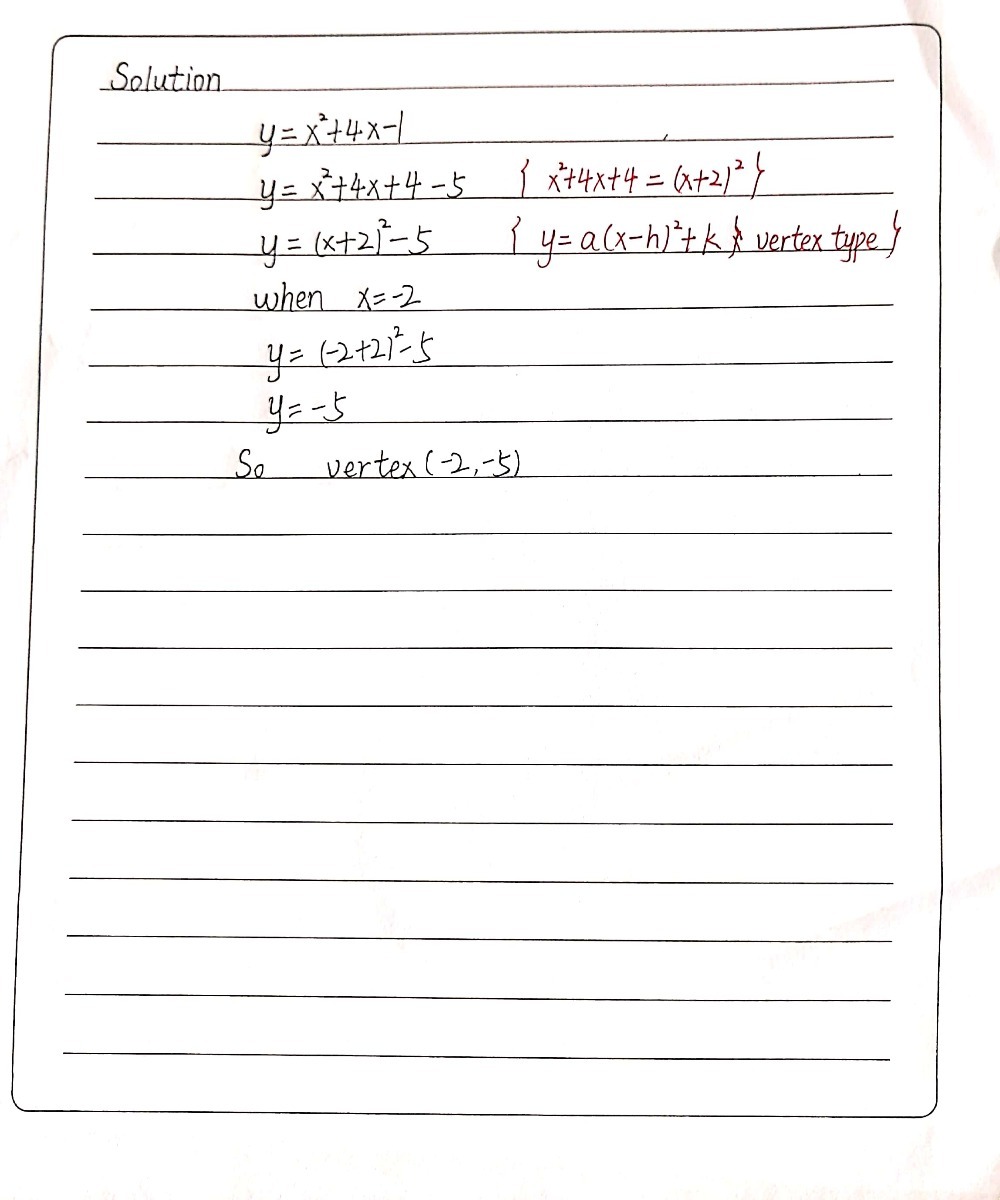 Solution
y = x²+4x-1
y = x²+4x+4-5 { x²+4x+4 = (x+2)² }
y = (x+2)²-5 { y = a(x-h)²+k } vertex type }
when x=-2
y = (-2+2)²-5
y = -5
So vertex (-2,-5)